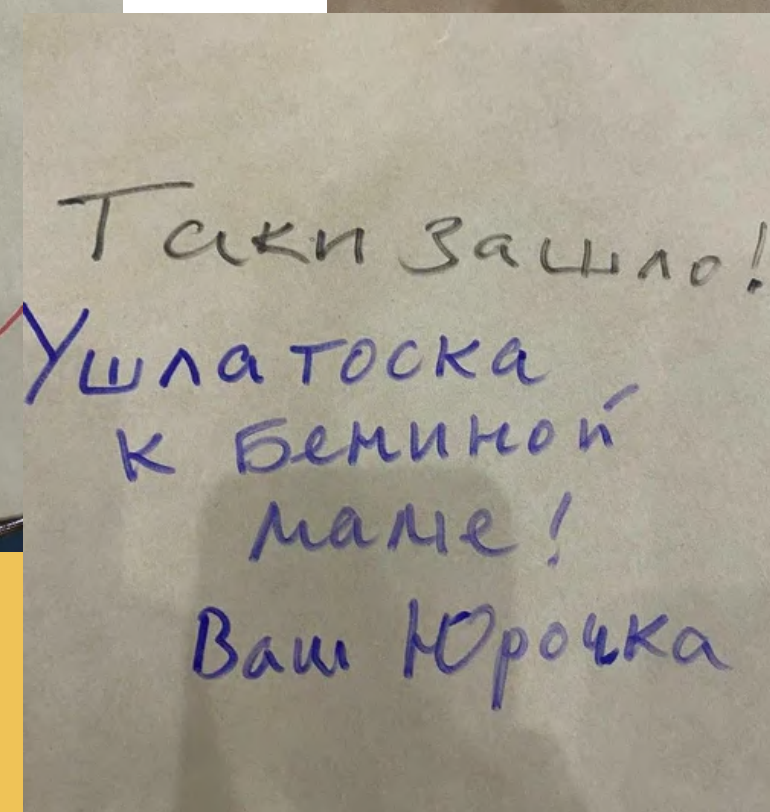 Таки зашло!
Ушла тоска
к Бениной
маме!
Ваш Юрочка